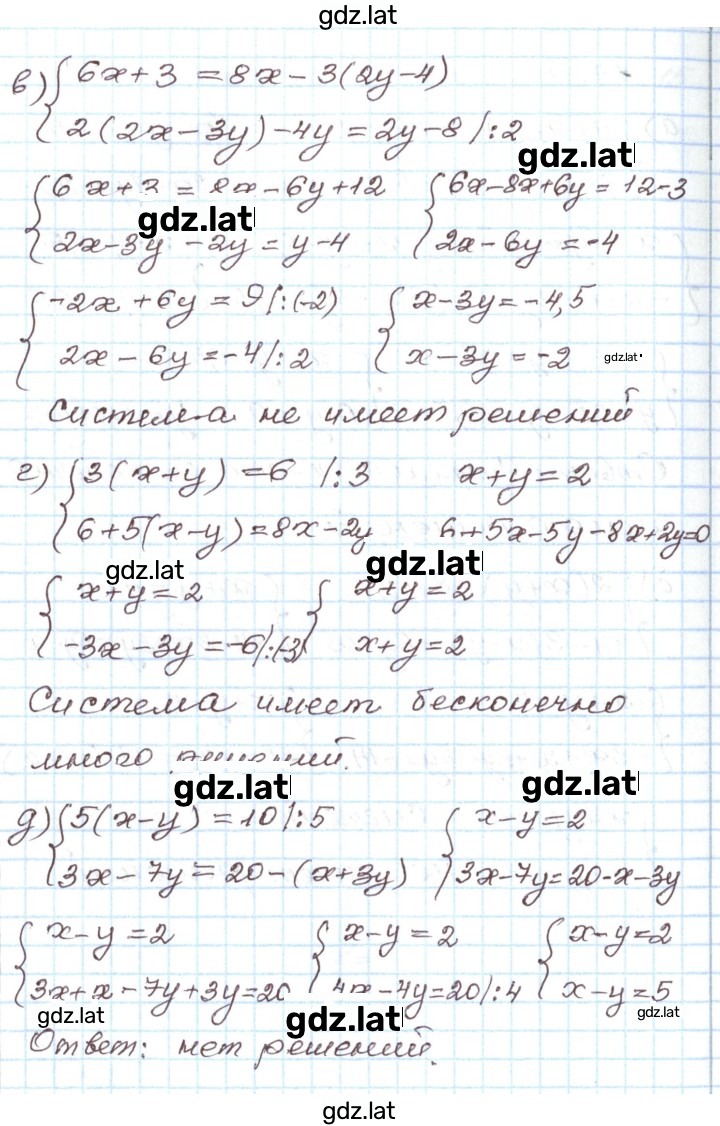 gdz.lat
в) { 6x + 3 = 8x - 3(2y-4)
2(2x - 3y) - 4y = 2y - 8 /:2
gdz.lat
{ 6x + 3 = 8x - 6y + 12 { 6x - 8x + 6y = 12 - 3
gdz.lat
2x - 3y - 2y = y - 4 2x - 6y = -4
{ -2x + 6y = 9 /:(-2) { x - 3y = -4,5
2x - 6y = -4 /:2 x - 3y = -2 gdz.lat
Система не имеет решений
г) { 3(x+y) = 6 /:3 x + y = 2
6 + 5(x-y) = 8x - 2y 6 + 5x - 5y - 8x + 2y = 0
gdz.lat gdz.lat
{ x + y = 2 { x + y = 2
-3x - 3y = -6 /:(-3) x + y = 2
Система имеет бесконечно
много решений.
gdz.lat gdz.lat
д) { 5(x-y) = 10 /:5 { x - y = 2
3x - 7y = 20 - (x+3y) 3x - 7y = 20 - x - 3y
{ x - y = 2 { x - y = 2 { x - y = 2
3x + x - 7y + 3y = 20 4x - 4y = 20 /:4 x - y = 5
gdz.lat gdz.lat gdz.lat
Ответ: нет решений.
gdz.lat